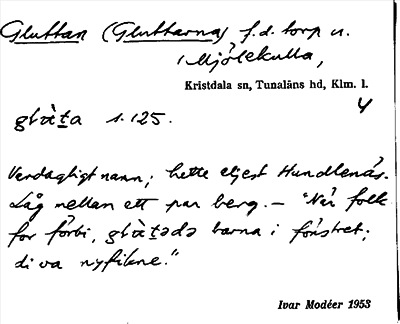 Gluttan (Gluttarna) f.d. torp u.
Mjölekulla,
Kristdala sn, Tunaläns hd, Klm. l.
4
1.125.
Vardagligt namn; hette eljest Hundlenäs.
Låg mellan ett par berg. – "När folk
for förbi, barna i fönstret;
di va nyfikne."
Ivar Modéer 1953